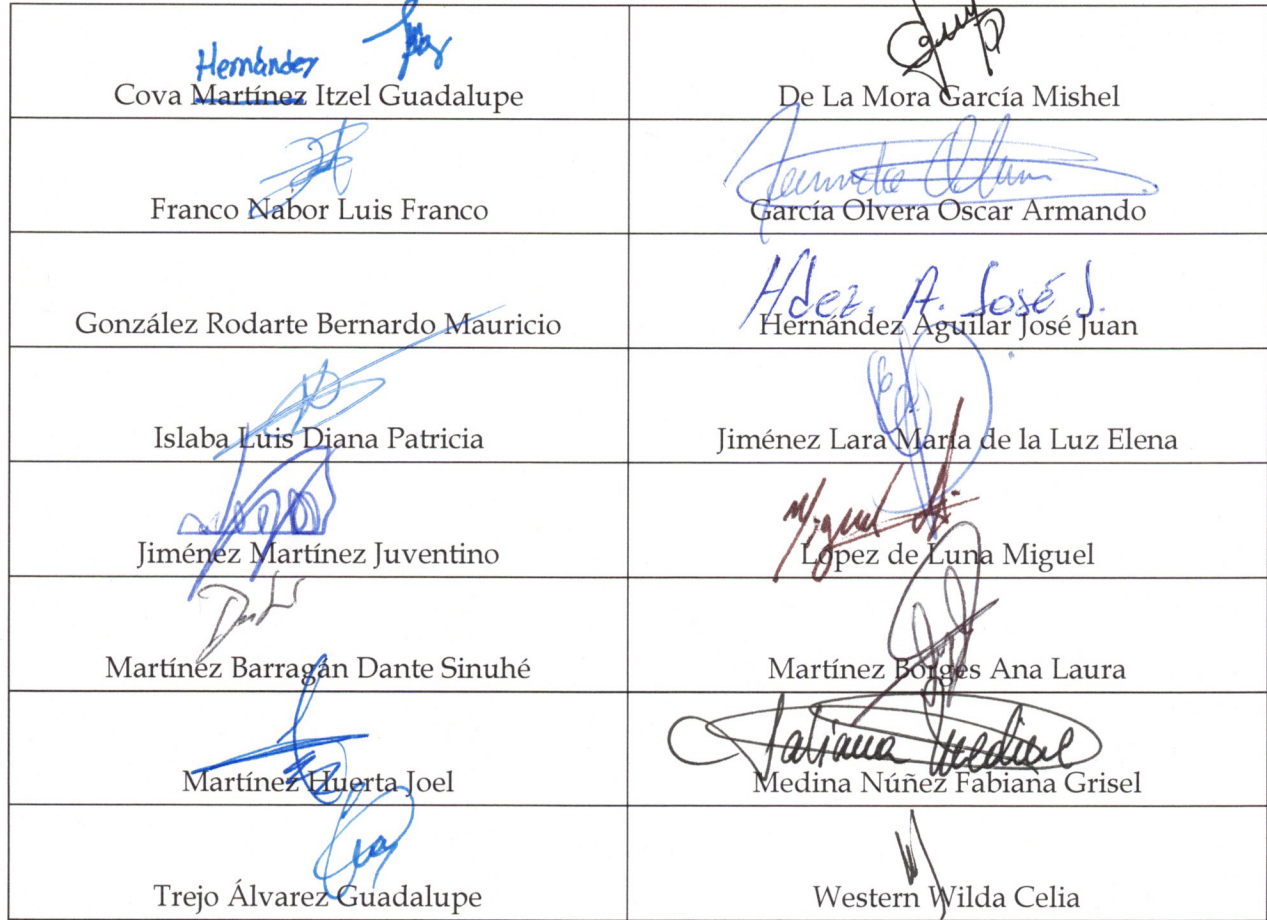 Hernández
Cova Martínez Itzel Guadalupe
De La Mora García Mishel
Franco Nabor Luis Franco
García Olvera Oscar Armando
González Rodarte Bernardo Mauricio
Hdez. A. José J.
Hernández Aguilar José Juan
Islaba Luis Diana Patricia
Jiménez Lara María de la Luz Elena
Jiménez Martínez Juventino
Miguel
López de Luna Miguel
Martínez Barragán Dante Sinuhé
Martínez Borges Ana Laura
Martínez Huerta Joel
Medina Núñez Fabiana Grisel
Trejo Álvarez Guadalupe
Western Wilda Celia